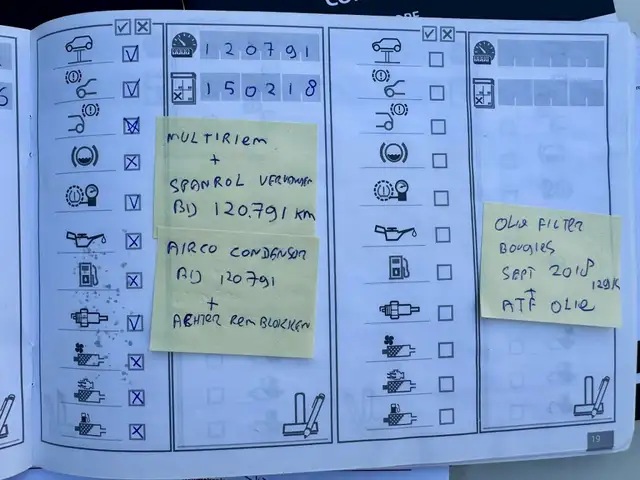 120791
150218
MULTIRIEM
+
SPANROL VERVANGEN
BIJ 120.791 KM
AIRCO CONDENSOR
BIJ 120791
+
ACHTER REMBLOKKEN
OLIE FILTER
BOUGIES
SEPT 2018
129K
+
ATF OLIE
19